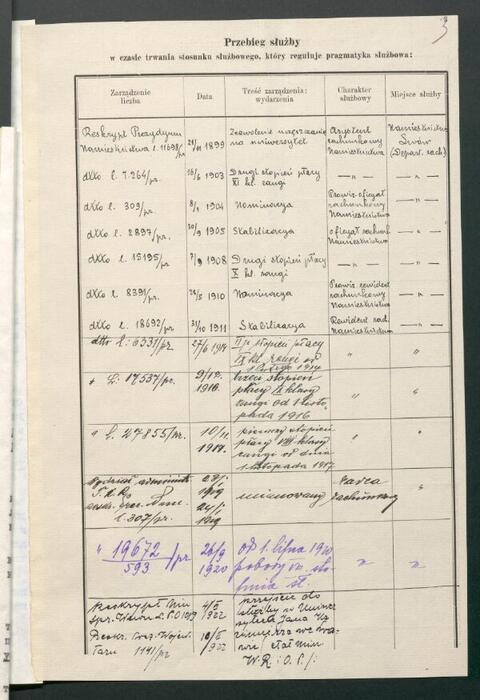 3
Przebieg służby
w czasie trwania stosunku służbowego, który reguluje pragmatyka służbowa:
Zarządzenie liczba
Data
Treść zarządzenia: wydarzenia
Charakter służbowy
Miejsce służby
Reskrypt Prezydyum Namiestnictwa l. 11698/pr 1899 Zezwolenie na uniwersytet Asystent rachunkowy Namiestnictwa Namiestnictwo Lwów (Depart. rach)
dtto l. 7.264/pr. 16/6 1903 Drugi stopień płacy XI kl. rangi — " — — " —
dtto l. 309/pr. 8/1 1904 Nominacja Prowiz. oficyał rachunkowy Namiestnictwa — " —
dtto l. 2897/pr. 1905 Stabilizacja oficyał rachunk. Namiestnictwa — " —
dtto l. 15195/pr. 1908 Drugi stopień płacy X kl. rangi — " — — " —
dtto l. 8391/pr. 1910 Nominacja Prowiz. rewident rachunkowy Namiestnictwa — " —
dtto l. 18692/pr. 31/10 1911 Stabilizacja Rewident rach. Namiestnictwa — " —
dtto l: 6331/pr. 27/6 1914 II-gi stopień płacy IX kl. rangi od 1914 " "
" L: 17537/pr. 1916. trzeci stopień płacy IX klasy rangi od 1 listopada 1916 " "
" l. 27855/pr. 10/11. 1917. pierwszy stopień płacy VIII klasy rangi od dnia 1 listopada 1917. " "
l. 307/pr. 1919 mianowany Radca rachunkowy "
" 19672/593 /pr 26/9 1920 od 1. lipca 1920 pobory st. " "
Reskrypt Min. 4/5 1922 przejście do służby w Uniwersytecie Jana Kazimierza we Lwowie
1141/pr. 10/5 1922 W. R. i O. P.